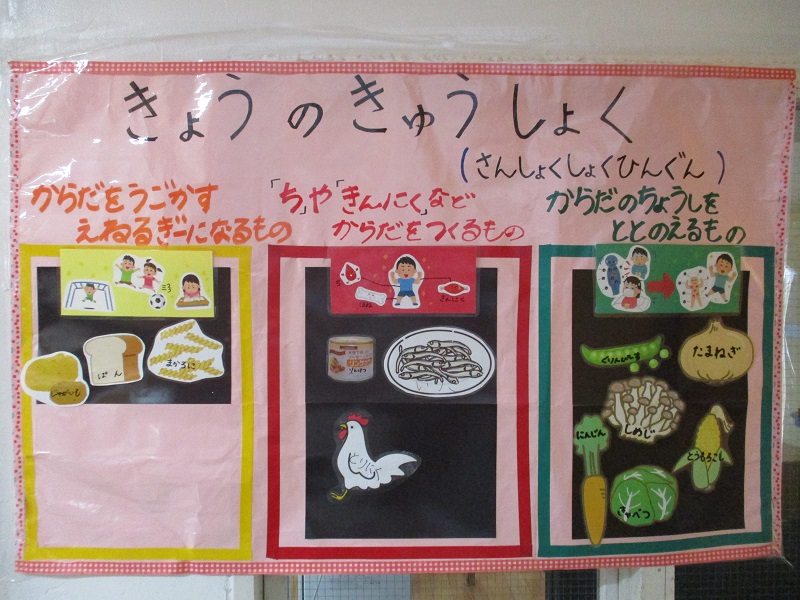 きょうのきゅうしょく
(さんしょくしょくひんぐん)
からだをうごかす
えねるぎーになるもの
「ち」や「きんにく」など
からだをつくるもの
からだのちょうしを
ととのえるもの
じゃがいも
ぱん
まかろに
とりにく
ぐりんぴーす
たまねぎ
しめじ
にんじん
とうもろこし
きゃべつ